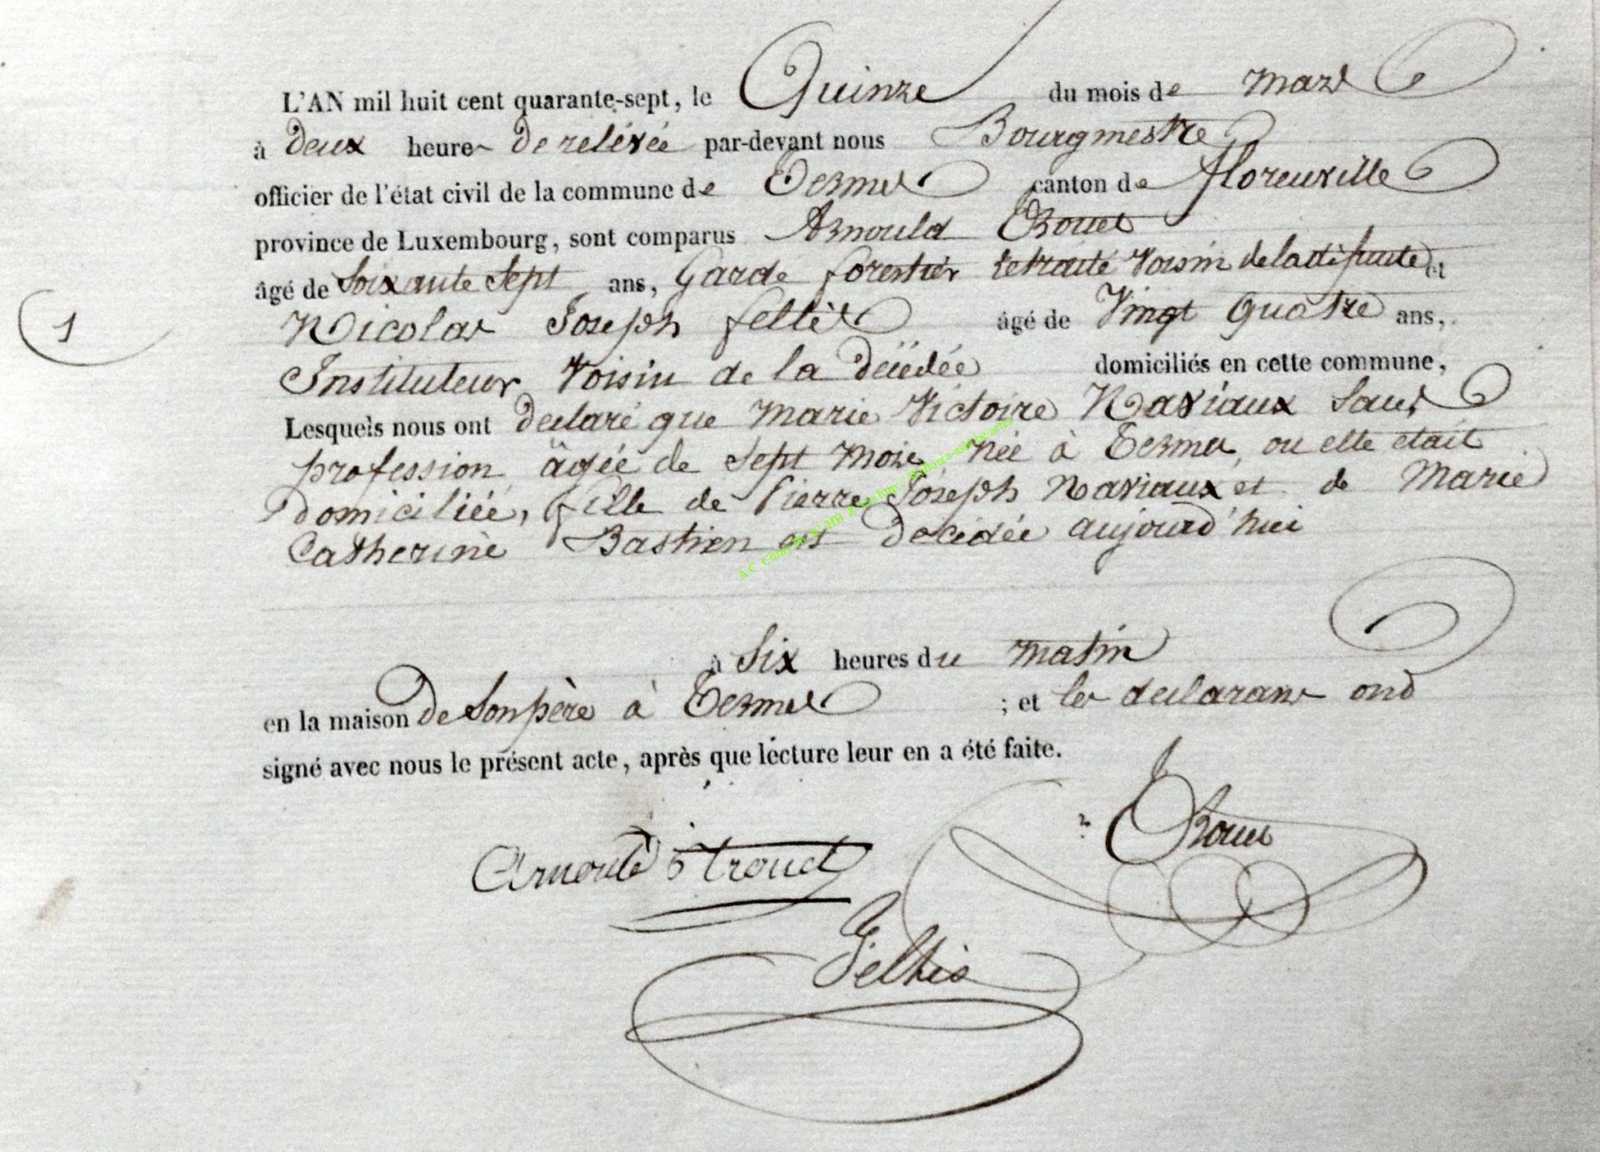 L'AN mil huit cent quarante-sept, le Quinze du mois de mars
à deux heure de relévée par-devant nous Bourgmestre
officier de l'état civil de la commune de Termes canton de florenville
province de Luxembourg, sont comparus Arnould
âgé de Soixante Sept ans, Garde forestier retraité Voisin de la défunte et
1
Nicolas Joseph âgé de Vingt Quatre ans,
Instituteur, Voisin de la décédée domiciliés en cette commune,
Lesquels nous ont declaré que Marie Victoire Naviaux Sans
profession, âgée de Sept mois, née à Termes, ou elle était
domiciliée, fille de Pierre Joseph Naviaux et de Marie
Catherine Bastien est décédée aujourd'hui
à Six heures du matin
en la maison de Son père à Termes ; et les declarans ond
signé avec nous le présent acte, après que lecture leur en a été faite.